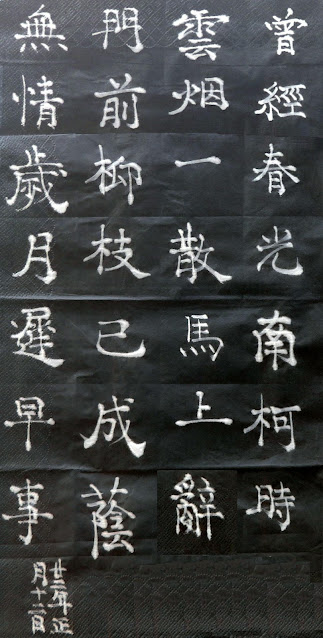 曾經春光南柯時
雲烟一散馬上辭
門前柳枝已成蔭
無情歲月遲早事
廿二年正
月十二日